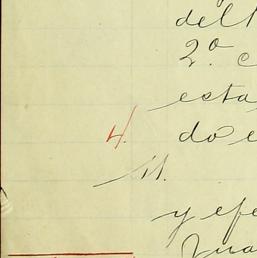 del
2º. c
esta
4. do e
11.
y efe